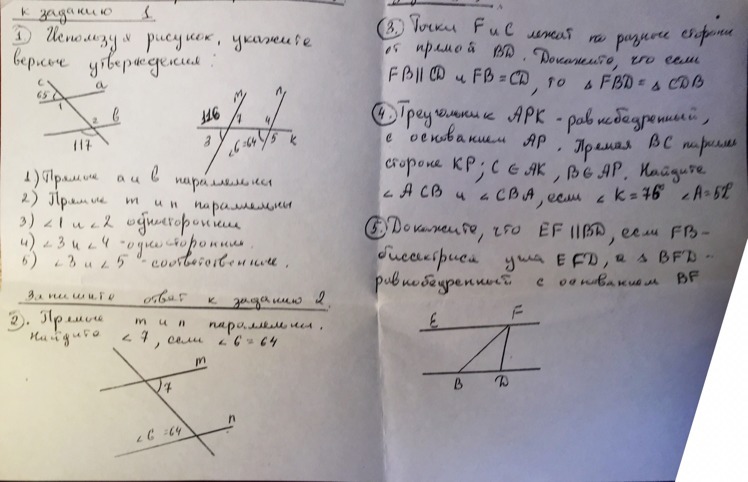 к заданию 1
1 Используя рисунок, укажите
верные утверждения:
c
a
65
1
b
2
117
m
n
116
7
4
3
∠6=64
5
k
1) Прямые a и b параллельны
2) Прямые m и n параллельны
3) ∠1 и ∠2 односторонние
4) ∠3 и ∠4 - односторонние.
5) ∠3 и ∠5 - соответственные.
Запишите ответ к заданию 2
2. Прямые m и n параллельны.
Найдите ∠7, если ∠6=64
m
7
n
∠6=64
3. Точки F и C лежат по разные стороны
от прямой BD. Докажите, что если
FB||CD и FB=CD, то △FBD=△CDB
4. Треугольник APK - равнобедренный,
с основанием AP. Прямая BC паралл
стороне KP; C∈AK, B∈AP. Найдите
∠ACB и ∠CBA, если ∠K=76° ∠A=52
5. Докажите, что EF||BD, если FB-
биссектриса угла EFD, а △BFD-
равнобедренный с основанием BF
E
F
B
D